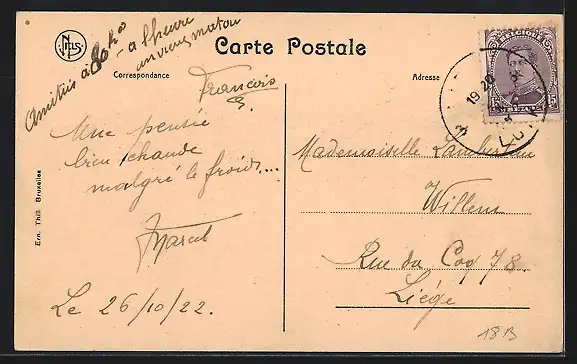 Carte Postale
Correspondance
Adresse
NELS
BELGIQUE
15 15
19-20
Amitiés à
à l'heure
un vieux matou
François
Une pensée
bien chaude
malgré le froid....
Marcel
Le 26/10/22.
Mademoiselle
Willems
Rue du Coq 78.
Liége
Ern. Thill Bruxelles
18B